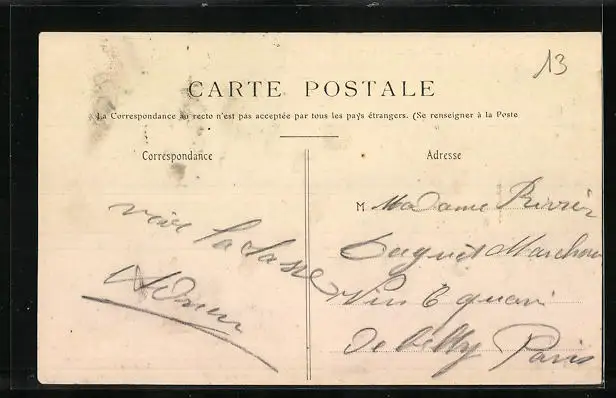 13
CARTE POSTALE
La Correspondance au recto n'est pas acceptée par tous les pays étrangers. (Se renseigner à la Poste
Correspondance
Adresse
vive la classe
M Madame Rivier
Marchan
Vin 6 quai
de Billy Paris